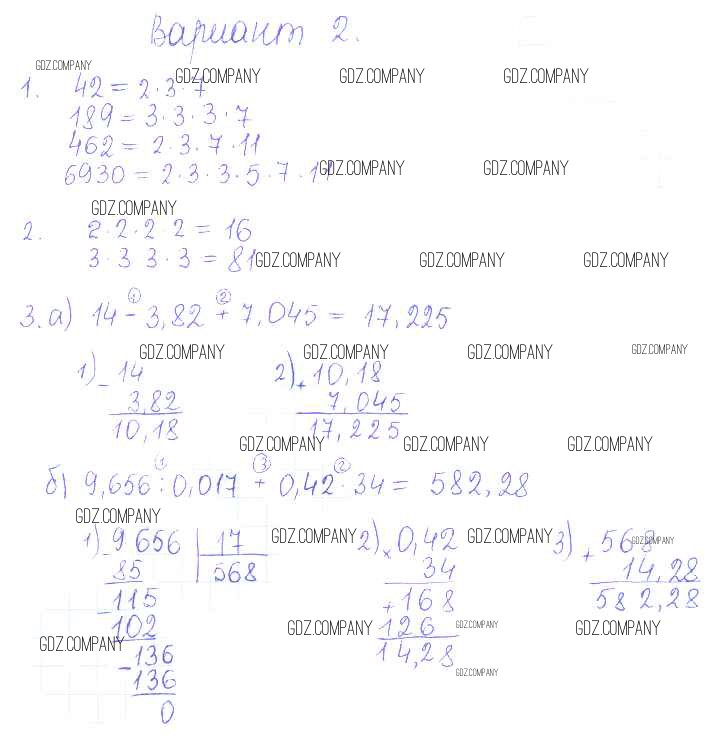 Вариант 2.
GDZ.COMPANY GDZ.COMPANY GDZ.COMPANY GDZ.COMPANY
1. 42 = 2·3·7
189 = 3·3·3·7
462 = 2·3·7·11
6930 = 2·3·3·5·7·11 GDZ.COMPANY GDZ.COMPANY
GDZ.COMPANY
2. 2·2·2·2 = 16
3·3 3·3 = 81 GDZ.COMPANY GDZ.COMPANY GDZ.COMPANY
① ②
3. а) 14 - 3,82 + 7,045 = 17,225
GDZ.COMPANY GDZ.COMPANY GDZ.COMPANY GDZ.COMPANY
1) - 14 2) + 10,18
3,82 7,045
10,18 17,225
GDZ.COMPANY GDZ.COMPANY GDZ.COMPANY
① ③ ②
б) 9,656 : 0,017 + 0,42 · 34 = 582,28
GDZ.COMPANY
1) - 9656 17 GDZ.COMPANY 2) × 0,42 GDZ.COMPANY 3) + 568 GDZ.COMPANY
85 568 34 14,28
- 115 + 168 582,28
102 GDZ.COMPANY 126 GDZ.COMPANY GDZ.COMPANY
GDZ.COMPANY - 136 14,28
136 GDZ.COMPANY
0